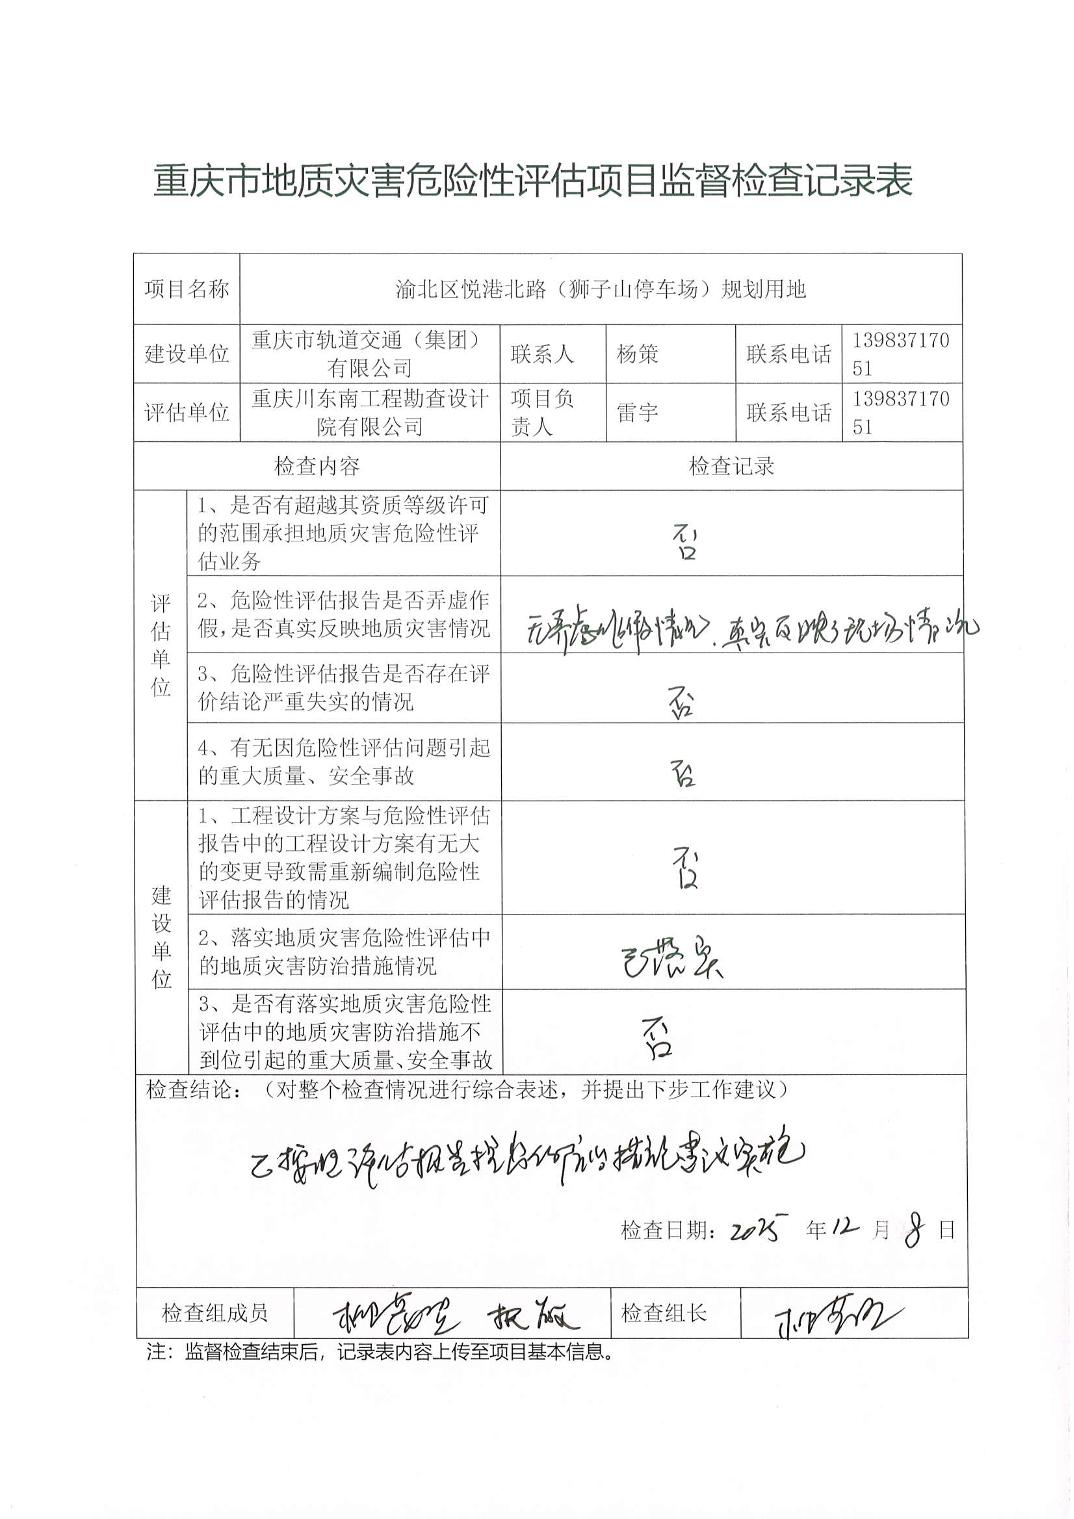 重庆市地质灾害危险性评估项目监督检查记录表
项目名称
渝北区悦港北路（狮子山停车场）规划用地
建设单位
重庆市轨道交通（集团）
有限公司
联系人
杨策
联系电话
139837170
51
评估单位
重庆川东南工程勘查设计
院有限公司
项目负
责人
雷宇
联系电话
139837170
51
检查内容
检查记录
评估单位
1、是否有超越其资质等级许可
的范围承担地质灾害危险性评
估业务
否
2、危险性评估报告是否弄虚作
假,是否真实反映地质灾害情况
无弄虚作假情况、真实反映了现场情况
3、危险性评估报告是否存在评
价结论严重失实的情况
否
4、有无因危险性评估问题引起
的重大质量、安全事故
否
建设单位
1、工程设计方案与危险性评估
报告中的工程设计方案有无大
的变更导致需重新编制危险性
评估报告的情况
否
2、落实地质灾害危险性评估中
的地质灾害防治措施情况
已落实
3、是否有落实地质灾害危险性
评估中的地质灾害防治措施不
到位引起的重大质量、安全事故
否
检查结论：（对整个检查情况进行综合表述，并提出下步工作建议）
已按照评估报告提出的防治措施建议实施
检查日期：2025 年 12 月 8 日
检查组成员
检查组长
注：监督检查结束后，记录表内容上传至项目基本信息。